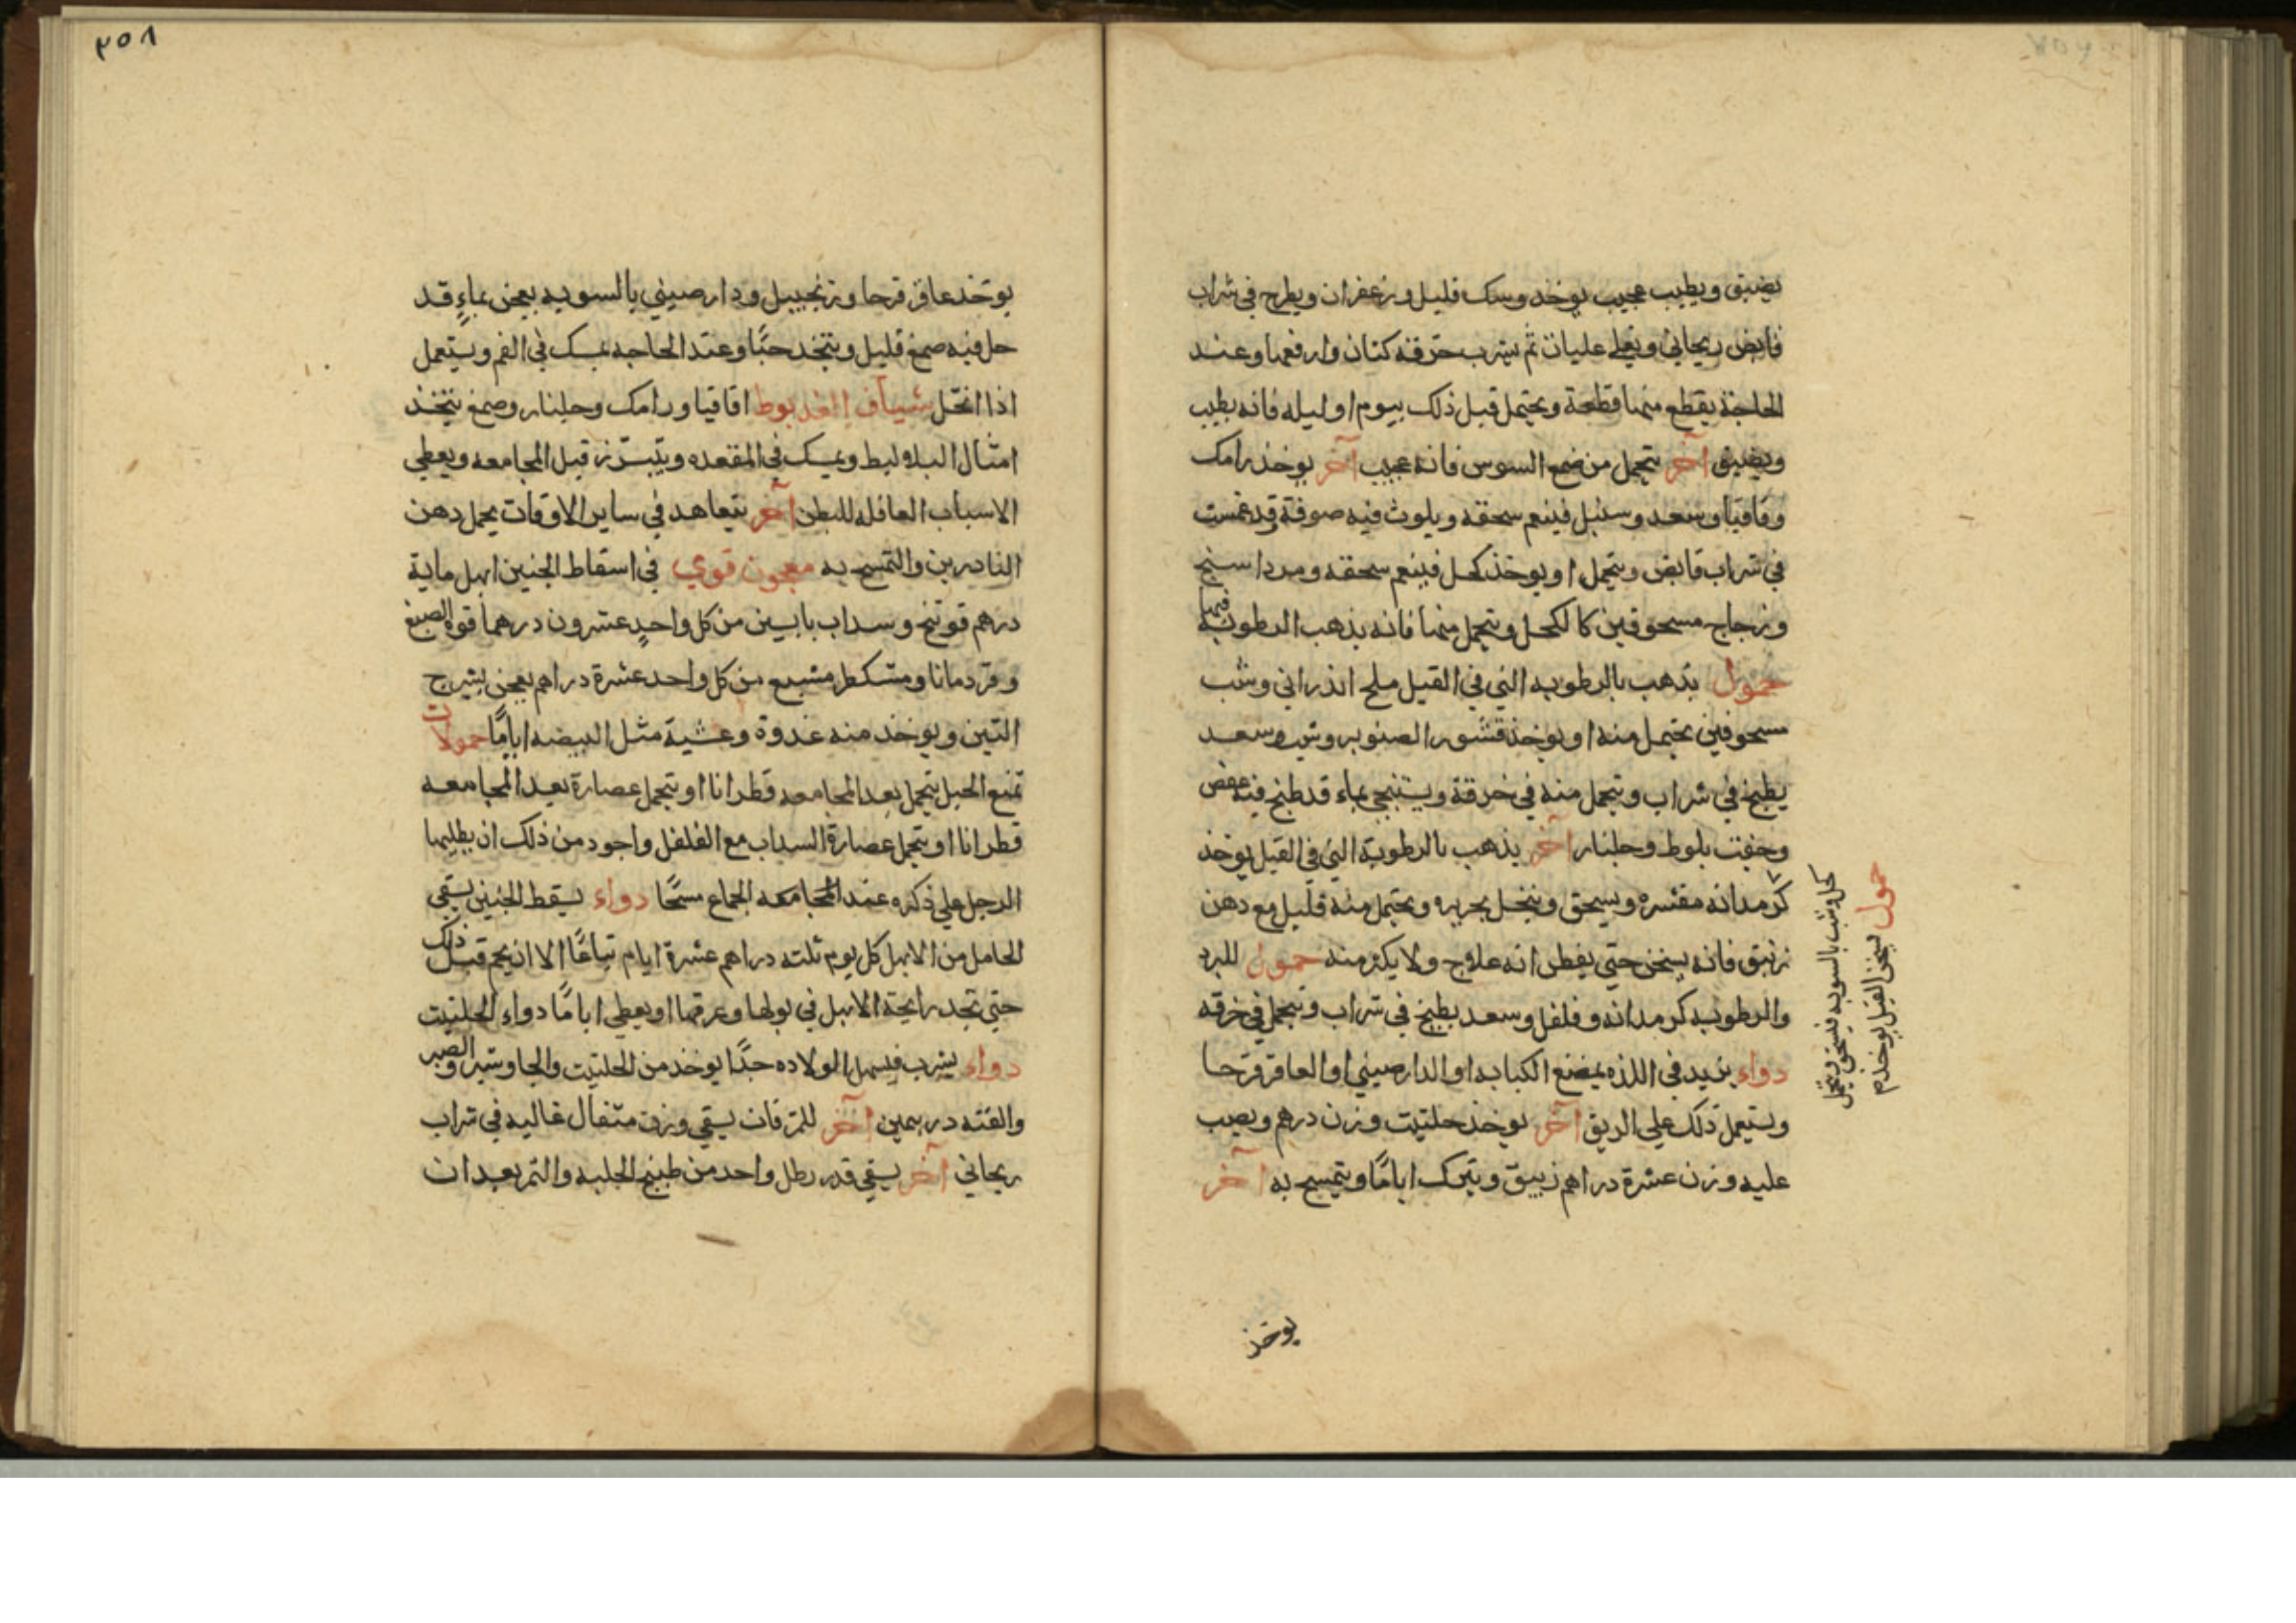 يضيق ويطيب عجيب يوخد وسك قليل وزعفران ويطرح في شراب
قابض ريحاني ويغلي غليات ثم يشرب خرقة كتان وارفعها وعند
الحاجة يقطع منها قطعة ويحتمل قبل ذلك بيوم او ليله فانه يطيب
ويضيق آخر تتحمل من السوس فانه عجيب آخر يوخذ رامك
وقاقيا وسعد وسنبل فينعم سحقه ويلوث فيه صوفة قد غمست
في شراب قابض ويتحمل او يوخذ كحل فينعم سحقه ومرداسنج
وزجاج مسحوقين كالكحل ويتحمل منها فانه يذهب الرطوبة فيها
حمول يذهب بالرطوبه التي في القبل ملح اندراني وشب
مسحوقين يحتمل منه او يوخذ قشور الصنوبر وشب وسعد
يطبخ في شراب ويتحمل منه في خرقة ويستنجي بماء قد طبخ فيه عفص
وجفت بلوط وجلنار آخر يذهب بالرطوبة التي في القبل يوخذ
كرمدانه مقشره ويسحق وينخل بحريره ويحتمل منه قليل مع دهن
زنبق فانه يسخن حتي يفطن انه علاج ولا يكثر منه حمول للبرد
والرطوبه كرمدانه وفلفل وسعد يطبخ في شراب وتتحمل في خرقه
دواء يزيد في اللذه يمضغ الكبابه او الدارصيني او العاقر قرحا
ويستعمل ذلك علي الريق آخر يوخذ حلتيت وزن درهم ويصب
عليه وزن عشرة دراهم زيبق ويترك اياما ويتمسح به آخر
حمول يسخن القبل يوخذ
كحل وشب بالسويه فيسحق ويتحمل
يوخذ
٣٥٨
يوخذ عاقر قرحا وزنجبيل ودارصيني بالسويه يعجن بماء قد
حل فيه صمغ قليل ويتخد حبا وعند الحاجه يمسك في الفم ويستعمل
اذا انحل شياف العذيوط اقاقيا ورامك وجلنار وصمغ يتخذ
امثال البلاليط ويمسك في المقعده ويتبرز قبل المجامعه ويعطي
الاسباب العاقله للبطن آخر يتعاهد في ساير الاوقات بحمل دهن
الناردين والتمسح به معجون قوي في اسقاط الجنين ابهل ماية
درهم فوتنج وسداب يابسين من كل واحد عشرون درهما قوه الصبغ
وقردمانا ومشكطرمشيع من كل واحد عشرة دراهم يعجن بشيرج
التين ويوخذ منه غدوة وعشية مثل البيضه اياما حمولات
تمنع الحبل يتحمل بعد المجامعه قطرانا او يتحمل عصارة بعد المجامعه
قطرانا او يتحمل عصارة السداب مع الفلفل واجود من ذلك ان يطليها
الرجل علي ذكره عند المجامعه الجماع مسحا دواء يسقط الجنين يسقي
الحامل من الابهل كل يوم ثلثه دراهم عشرة ايام تباعا الا ان يحم قبل ذلك
حتي تجد رايحة الابهل في بولها وعرقها او يعطي اياما دواء الحلتيت
دواء يشرب فيسهل الولاده جدا يوخذ من الحلتيت والجاوشير والصبر
والقنه درهمين آخر للزفان يسقي وزن مثقال غاليه في شراب
ريحاني آخر يسقي قدر رطل واحد من طبيخ الحلبه والتمر بعد ان